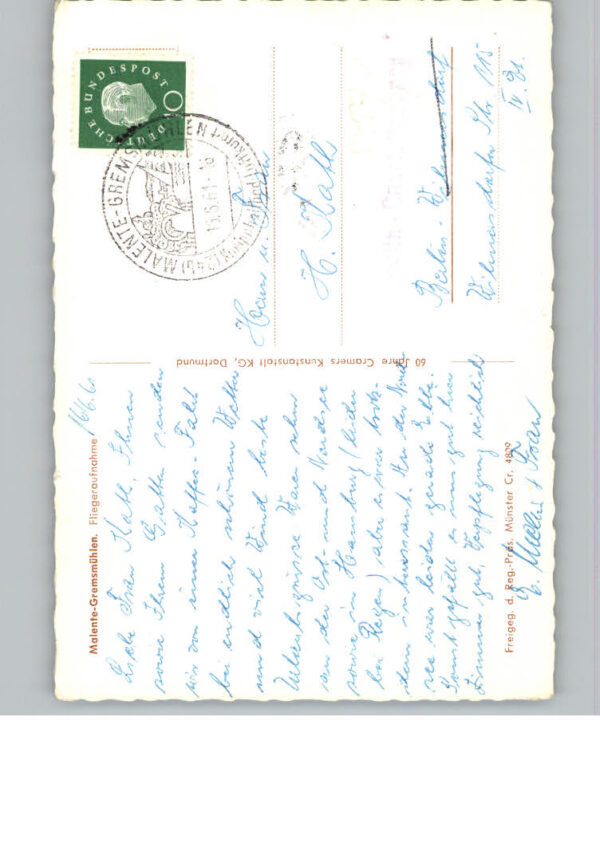 Malente-Gremsmühlen. Fliegeraufnahme
16.6.61
Liebe Frau Kath, Ihnen
sowie Ihrem Gatten senden
wir von einer Kaffee-Fahrt
bei endlich schönem Wetter
und viel Wind beste
Urlaubsgrüsse. Waren schon
an der Ost- und Nordsee
sowie in Hamburg (leider
bei Regen) aber es war trotz-
dem interessant. An der Nord-
see war leider gerade Ebbe.
Sonst gefällt es uns gut hier
Zimmer gut, Verpflegung reichlich
E. Müller + Frau
Freigeg. d. Reg.-Präs. Münster Cr. 4809
60 Jahre Cramers Kunstanstalt KG, Dortmund
DEUTSCHE BUNDESPOST
10
(24b) MALENTE-GREMSMÜHLEN
Luftkurort
Herrn u. Frau
H. Kath
Berlin - Wilmersdorf
Wilmersdorfer Str. 115
IV. Et.